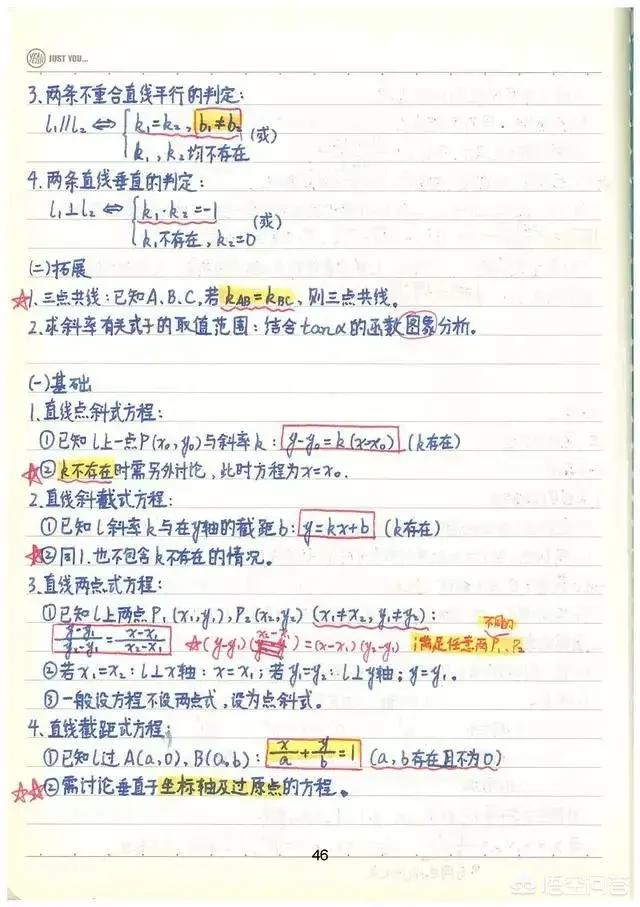 JUST YOU...
3.两条不重合直线平行的判定:
l₁∥l₂ ⇔ { k₁=k₂, b₁≠b₂ (或)
k₁,k₂均不存在
4.两条直线垂直的判定:
l₁⊥l₂ ⇔ { k₁·k₂=-1 (或)
k₁不存在,k₂=0
(二)拓展
☆1.三点共线:已知A、B、C,若k_AB=k_BC,则三点共线。
2.求斜率有关式子的取值范围:结合tanα的函数图象分析。
(一)基础
1.直线点斜式方程:
①已知l上一点P(x₀,y₀)与斜率k: y-y₀=k(x-x₀) (k存在)
☆②k不存在时需另外讨论,此时方程为x=x₀.
2.直线斜截式方程:
①已知l斜率k与在y轴的截距b: y=kx+b (k存在)
☆②同1.也不包含k不存在的情况。
3.直线两点式方程:
①已知l上两点P₁(x₁,y₁),P₂(x₂,y₂) (x₁≠x₂,y₁≠y₂):
不同的
x₂-x₁
y-y₁/y₂-y₁=x-x₁/x₂-x₁ ☆(y-y₁)( )=(x-x₁)(y₂-y₁) 满足任意两P₁、P₂
②若x₁=x₂:l⊥x轴:x=x₁;若y₁=y₂:l⊥y轴;y=y₁。
③一般设方程不设两点式,设为点斜式。
4.直线截距式方程:
①已知l过A(a,0),B(0,b): x/a+y/b=1 (a,b存在且不为0)
☆☆②需讨论垂直于坐标轴及过原点的方程。
46
悟空问答